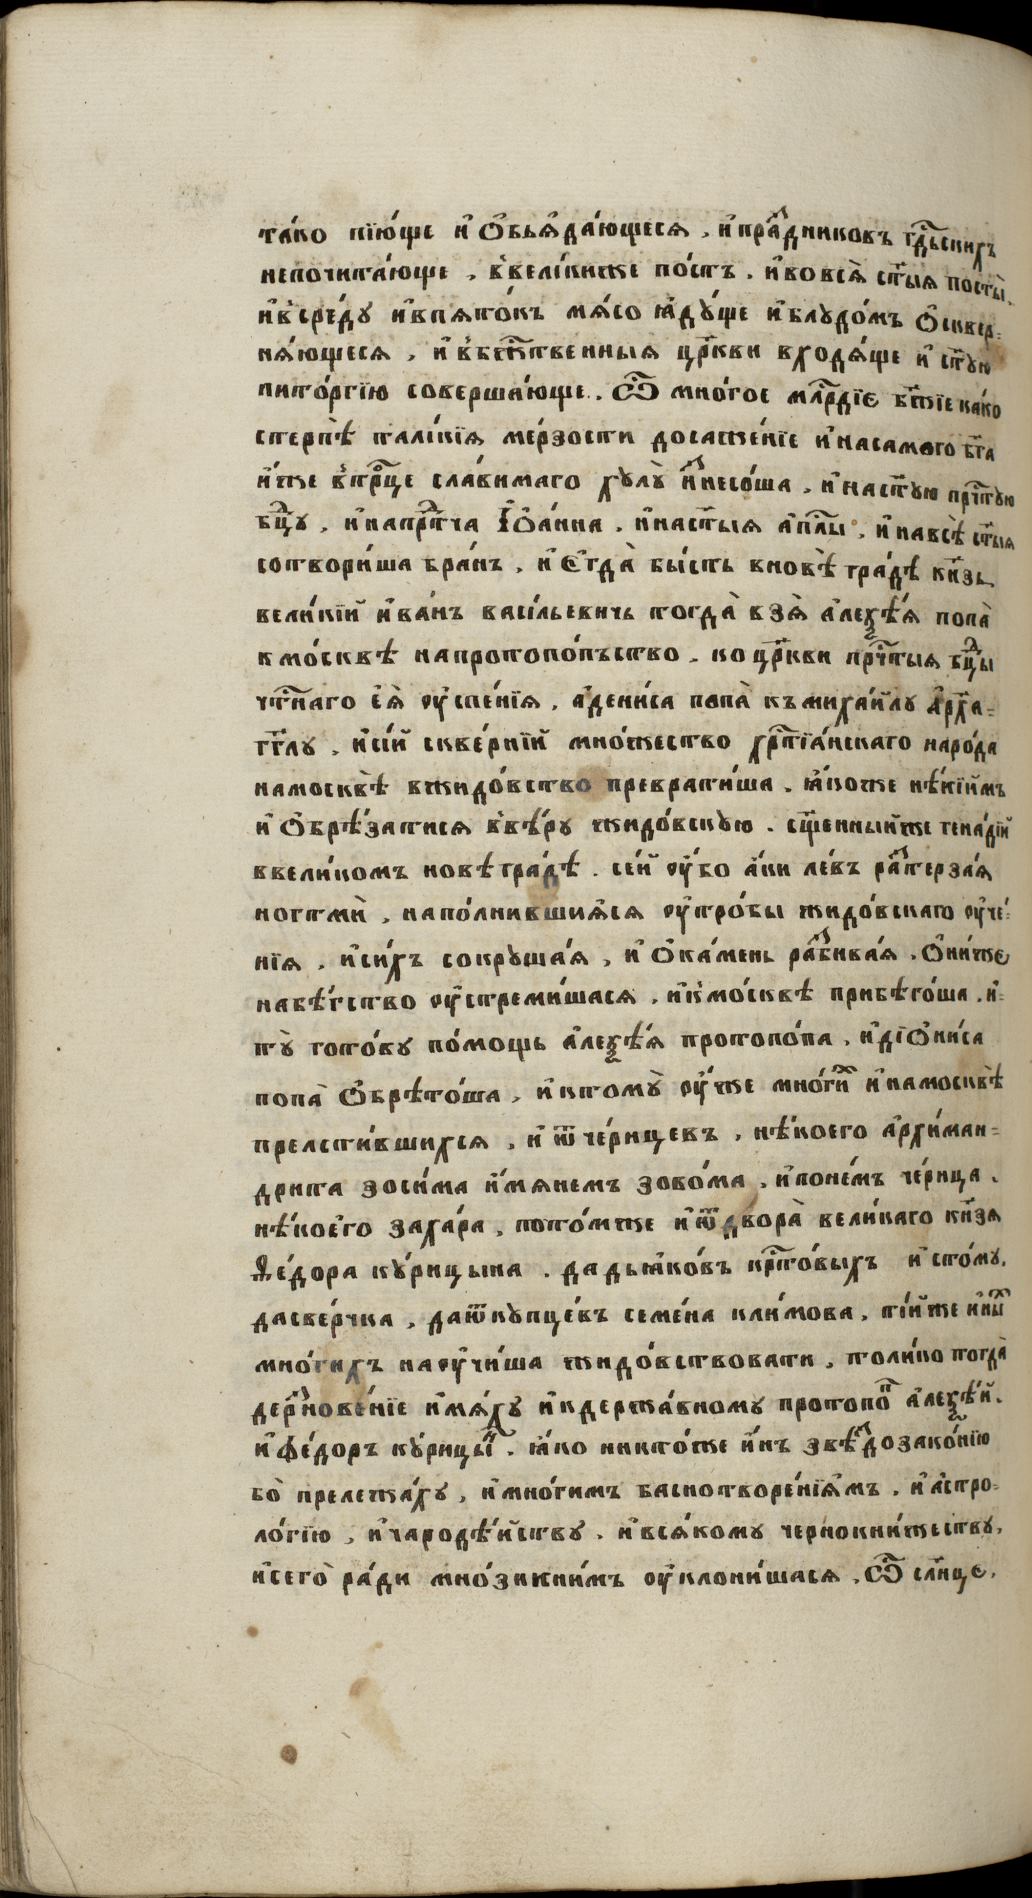 та́ко пїю́ще и҆ ѻ҆бьѧда́ющесѧ , и҆ пра́ⷥдниковъ гдⷭ҇ьскихъ
непочита́юще , в̾вели́кїиже по́стъ . и҆ во всѧ̀ ст҃ыѧ посты̀
и҆ в̾сре́дꙋ и҆ впѧто́къ мѧ́со ꙗ҆дꙋ́ще и҆ блꙋдо́мъ ѻ҆сквер-
нѧ́ющесѧ , и҆ в̾бжⷭ҇твенныѧ цр҃кви входѧ́ще и҆ ст҃ꙋю
литꙋрги́ю соверша́юще . Ѽ мно́гое млⷭ҇рдїе бж҃їе ка́ко
стерпѣ̀ тали́кїѧ ме́рзости досаже́нїе и҆ насамого бг҃а
и҆́же в̾трⷪ҇це сла́вимаго хꙋлꙋ̀ и҆ⷥнесо́ша . и҆ на ст҃ꙋю прⷭ҇тꙋю
бцⷣꙋ , и҆ напрⷣтча І҆ѻа́нна . и҆ наст҃ыѧ а҆пⷭ҇лы . и҆ навсѣ̀ ст҃ыѧ
сотвори́ша бра́нь , и҆ є҆гда̀ бы́сть вновѣ̀ гра́дѣ кн҃зь
вели́кїй и҆ва́нъ васи́льевичь тогда̀ взѧ̀ а҆леѯѣ́ѧ попа̀
к мо́сквѣ напротопо́пъство . ко цр҃кви прчⷭ҇тыѧ бцⷣы
чтⷭ҇наго є҆ѧ̀ оу҆спе́нїѧ , а҆дени́са попа̀ къ миха́йлꙋ а҆рха-
гг҃лꙋ , и҆сі́й скве́рнїй мно́жество хрⷭ҇тїа́нскаго наро́да
намосквѣ̀ вжидо́вство преврати́ша . ꙗ҆́коже нѣ́кїимъ
и҆ ѻ҆брѣ́затисѧ в̾вѣ́рꙋ жидо́вскꙋю . сщ҃е́нныйже гена́дїй
ввели́комъ новѣ гра́дѣ . се́й оу҆́бо а҆́ки ле́въ ра́ⷥтерзаѧ
ногтмѝ , напо́лнившиѧсѧ оу҆тро́бы жидо́вскаго оу҆че́-
нїѧ , и҆си́хъ сокрꙋша́ѧ , и҆ ѻ҆ка́мень ра́ⷥбиваѧ . ѻ҆ни́же
набѣ́гство оу҆стреми́шасѧ , и҆к̾мо́сквѣ прибѣго́ша . и҆-
тꙋ̀ гото́вꙋ по́мощь а҆леѯѣ́ѧ протопо́па , и҆ді́ѻни́са
попа̀ ѻ҆брѣто́ша , и҆ктомꙋ̀ оу҆́же мно́гиⷯ и҆ намосквѣ̀
прелсти́вшихсѧ , и҆ ѿче́рнцевъ , нѣ́коего а҆рхиман-
дрита зоси́ма и҆́мѧнемъ зово́ма , и҆поне́мъ че́рнца .
нѣ́коего заха́ра , пото́мже и҆ ѿдвора̀ вели́каго кн҃зѧ
Ѳе́дора кꙋ́рицына . да дьѧко́въ крⷭ҇то́выхъ и҆сто́мꙋ ,
да сверчка , да ѿкꙋпце́въ семе́на кли́мова , ті́йже и҆ны́ⷯ
мно́гихъ наꙋчи́ша жидо́вствовати , толи́ко тогда̀
дерⷥнове́нїе и҆мѧ́хꙋ и҆ кдержа́вномꙋ протопоⷫ҇ а҆леѯѣ́й .
и҆ фе́доръ кꙋ́рицыⷩ҇ . ꙗ҆́ко никто́же и҆́нъ звѣⷥдозако́нїю
бо̀ прележа́хꙋ , и҆ мно́гимъ баснотворе́нїѧмъ , и҆ а҆стро-
ло́гїю , и҆ чародѣ́йствꙋ . и҆ всѧ́комꙋ чернокни́жествꙋ ,
и҆ сего̀ ра́ди мно́зикни́мъ оу҆клони́шасѧ . Ѽ слн҃це .